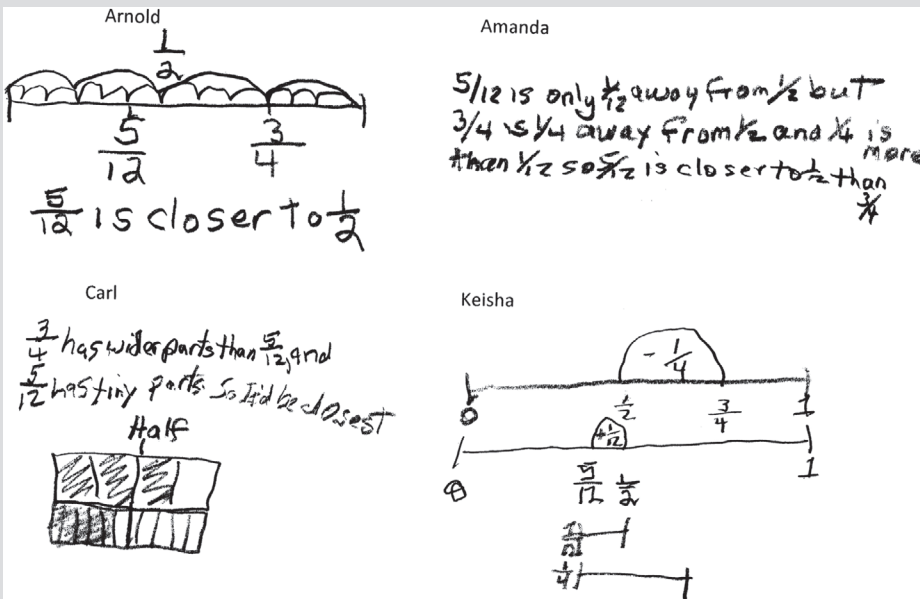 Arnold
1/2
5/12
3/4
5/12 is closer to 1/2
Amanda
5/12 is only 1/12 away from 1/2 but
3/4 is 1/4 away from 1/2 and 1/4 is
more
than 1/12 so 5/12 is closer to 1/2 than
3/4
Carl
3/4 has wider parts than 5/12, and
5/12 has tiny parts so it'd be closest
Half
Keisha
- 1/4
0
1/2
3/4
1
+1/12
0
5/12
1/2
1
1/12
1/4